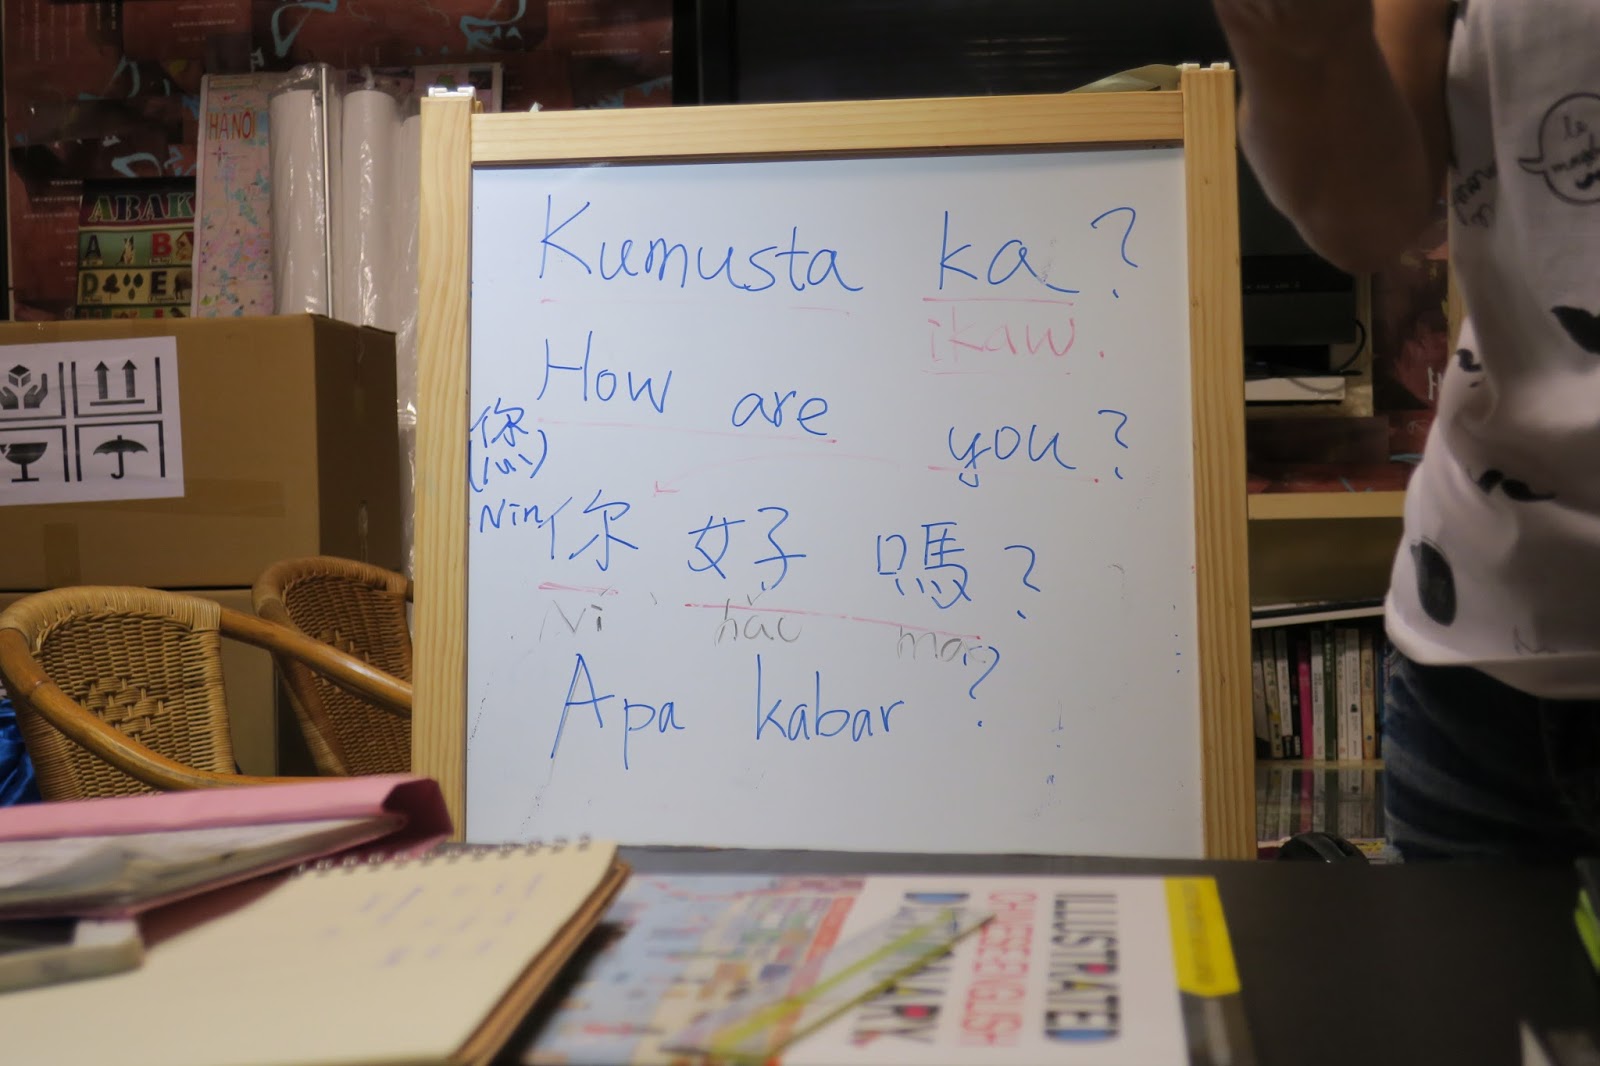 Kumusta ka?
ikaw.
How are you?
你
(心)
Nin
你 好 嗎?
Ni hǎo
Apa kabar?
HANOI
ABAK
A B
D E
ILLUSTRATED
CHINESE-ENGLISH
DICTIONARY